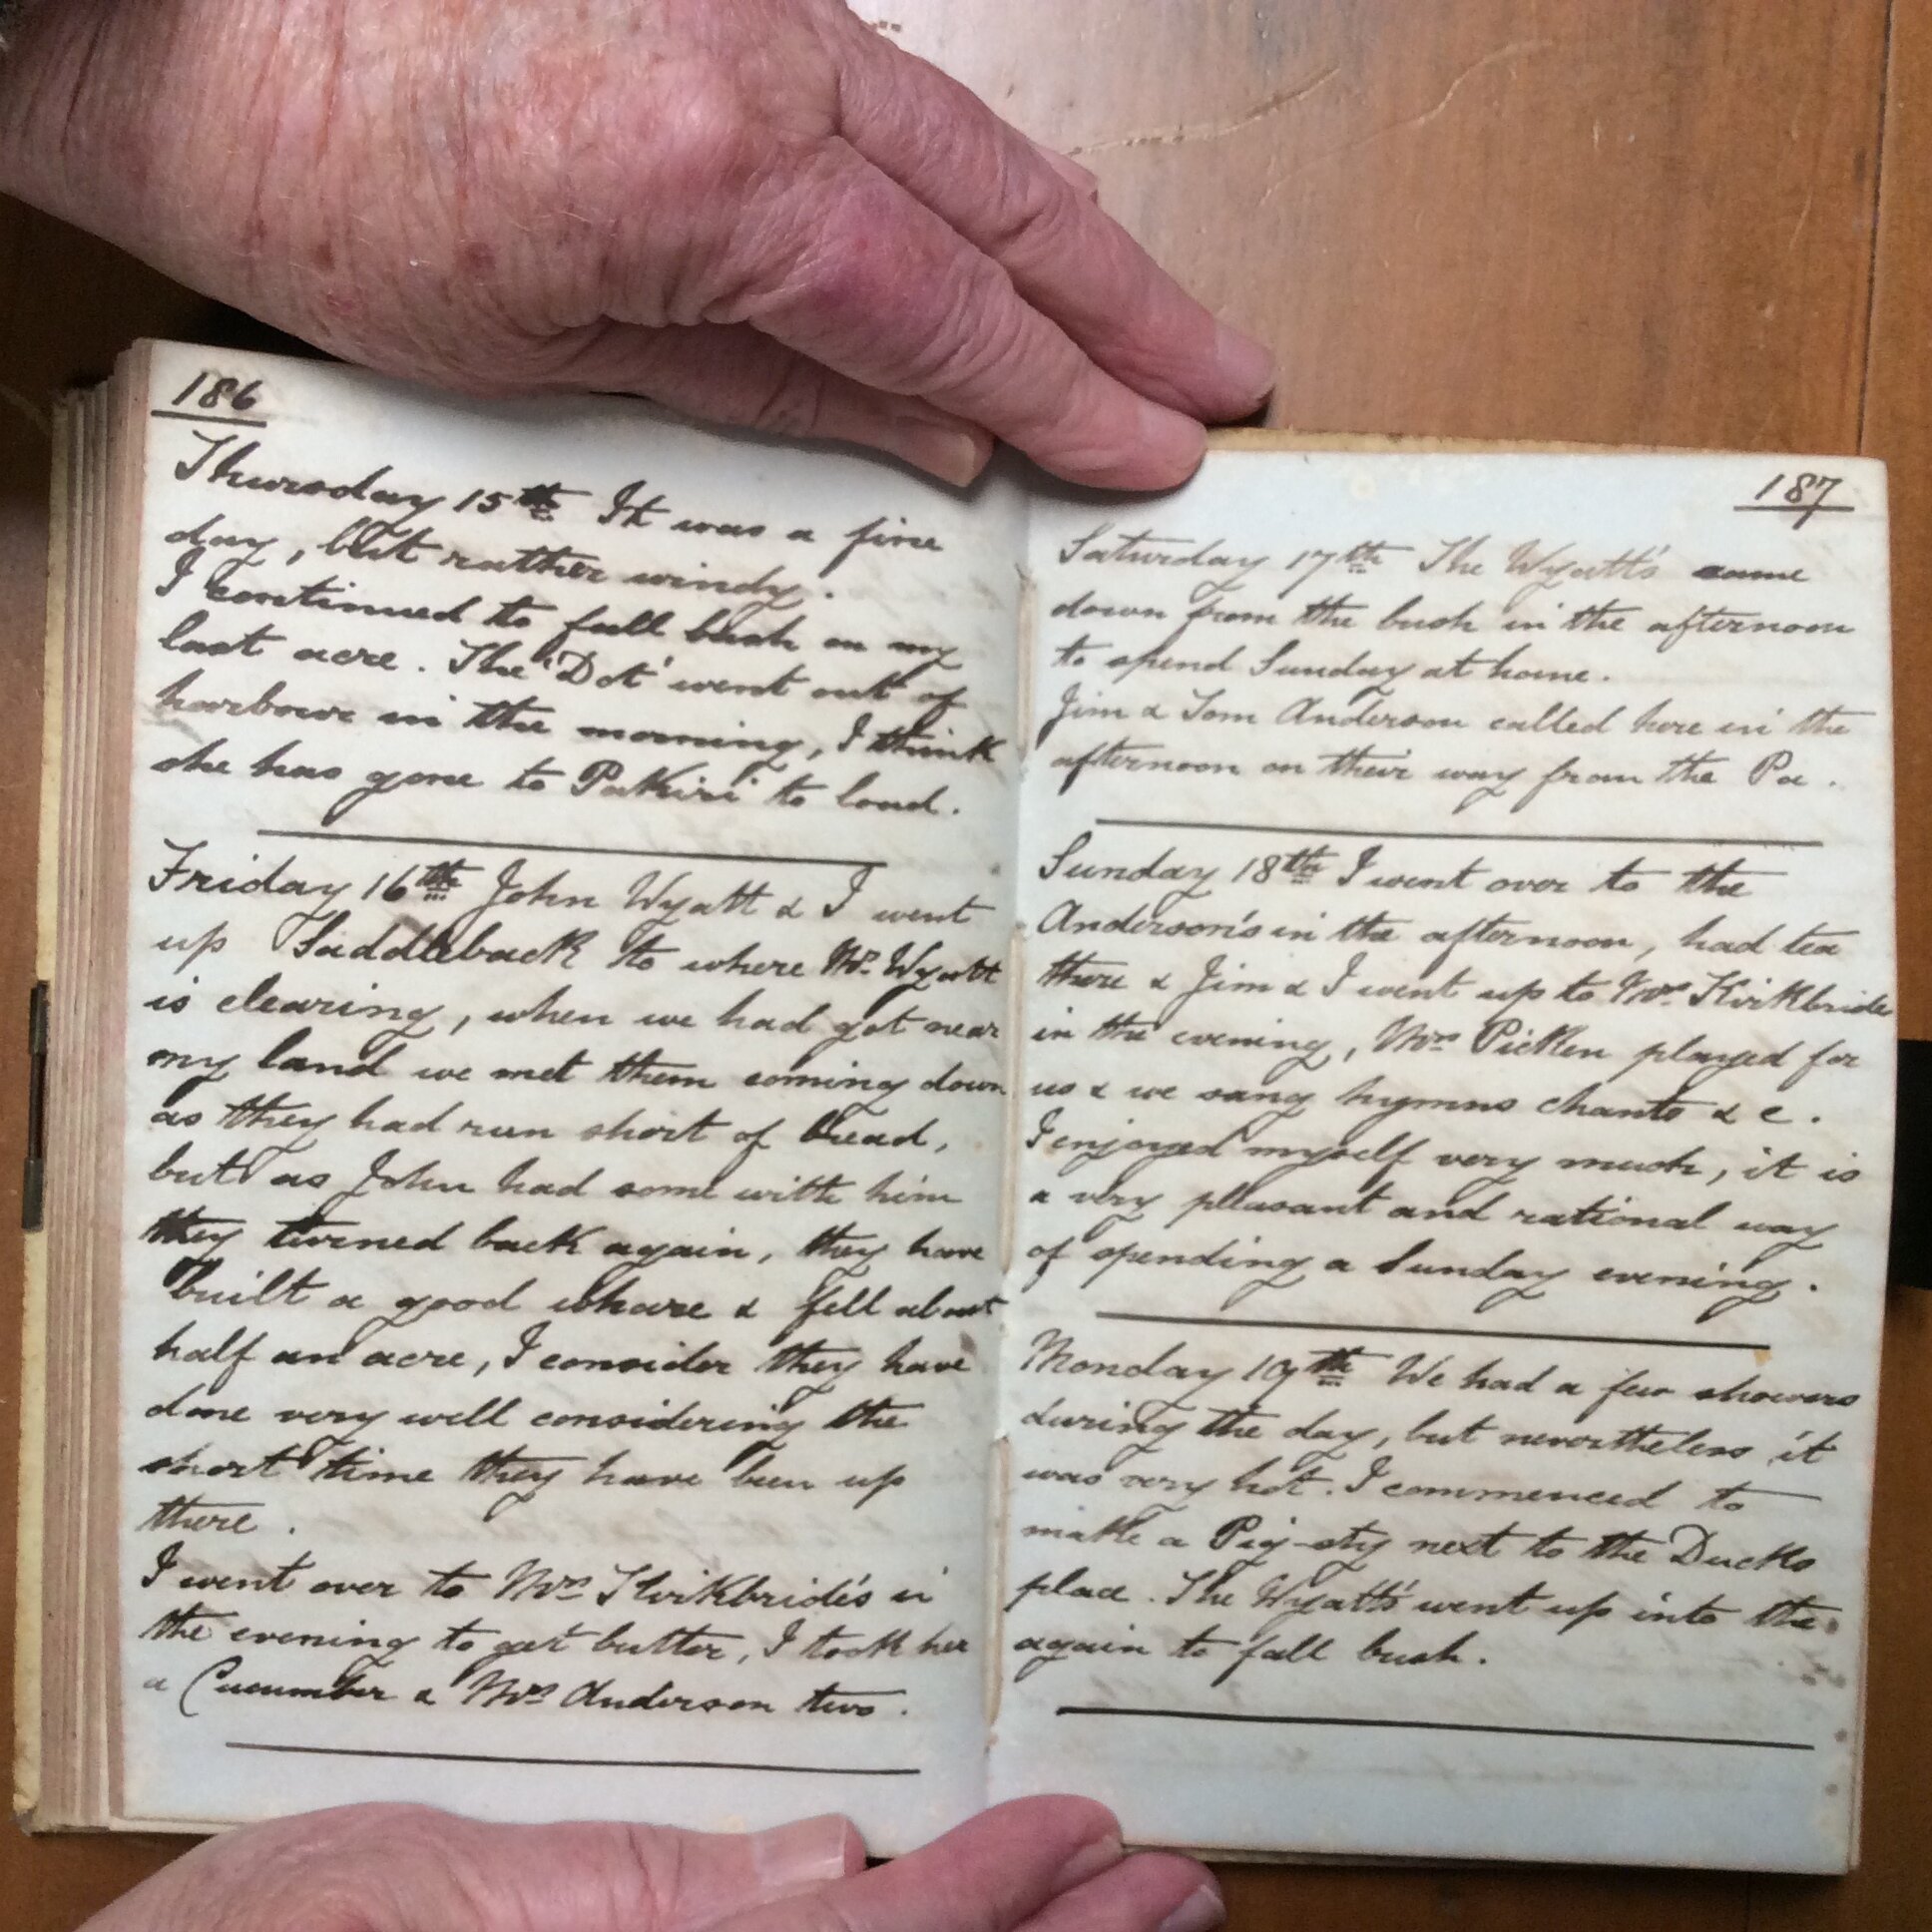 186
Thursday 15th It was a fine
day, but rather windy.
I continued to fall bush on my
last acre. The 'Dot' went out of
harbour in the morning, I think
she has gone to Pakiri to load.
Friday 16th John Wyatt & I went
up Saddleback to where Mr. Wyatt
is clearing, when we had got near
my land we met them coming down
as they had run short of bread,
but as John had some with him
they turned back again, they have
built a good whare & fell about
half an acre, I consider they have
done very well considering the
short time they have been up
there.
I went over to Mrs Kirkbride's in
the evening to get butter, I took her
a Cucumber & Mrs Anderson two.
187
Saturday 17th The Wyatt's came
down from the bush in the afternoon
to spend Sunday at home.
Jim & Tom Anderson called here in the
afternoon on their way from the Pa.
Sunday 18th I went over to the
Anderson's in the afternoon, had tea
there & Jim & I went up to Mrs Kirkbride
in the evening, Mrs Picken played for
us & we sang hymns chants & c.
I enjoyed myself very much, it is
a very pleasant and rational way
of spending a Sunday evening.
Monday 19th We had a few showers
during the day, but nevertheless it
was very hot. I commenced to
make a Pig-sty next to the Ducks
place. The Wyatt's went up into the
again to fall bush.